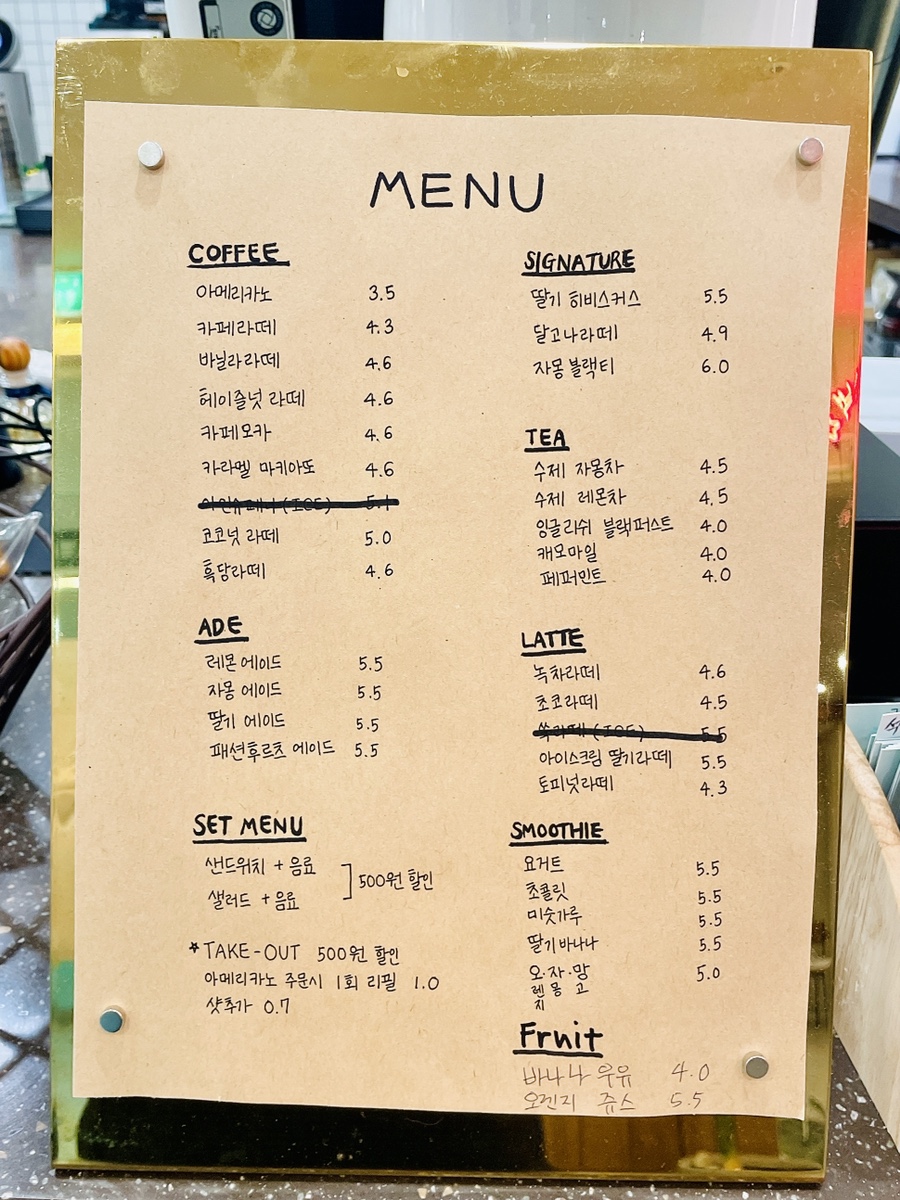 MENU
COFFEE
아메리카노 3.5
카페라떼 4.3
바닐라라떼 4.6
헤이즐넛 라떼 4.6
카페모카 4.6
카라멜 마키아또 4.6
아인슈페너 (ICE) 5.1
코코넛 라떼 5.0
흑당라떼 4.6
ADE
레몬 에이드 5.5
자몽 에이드 5.5
딸기 에이드 5.5
패션후르츠 에이드 5.5
SET MENU
샌드위치 + 음료
샐러드 + 음료
500원 할인
*TAKE-OUT 500원 할인
아메리카노 주문시 1회 리필 1.0
샷추가 0.7
SIGNATURE
딸기 히비스커스 5.5
달고나라떼 4.9
자몽블랙티 6.0
TEA
수제 자몽차 4.5
수제 레몬차 4.5
잉글리쉬 블랙퍼스트 4.0
캐모마일 4.0
페퍼민트 4.0
LATTE
녹차라떼 4.6
초코라떼 4.5
쑥라떼 (ICE) 5.5
아이스크림 딸기라떼 5.5
토피넛라떼 4.3
SMOOTHIE
요거트 5.5
초콜릿 5.5
미숫가루 5.5
딸기바나나 5.5
오·자·망 5.0
렌 몽 고
지
Fruit
바나나 우유 4.0
오렌지 쥬스 5.5